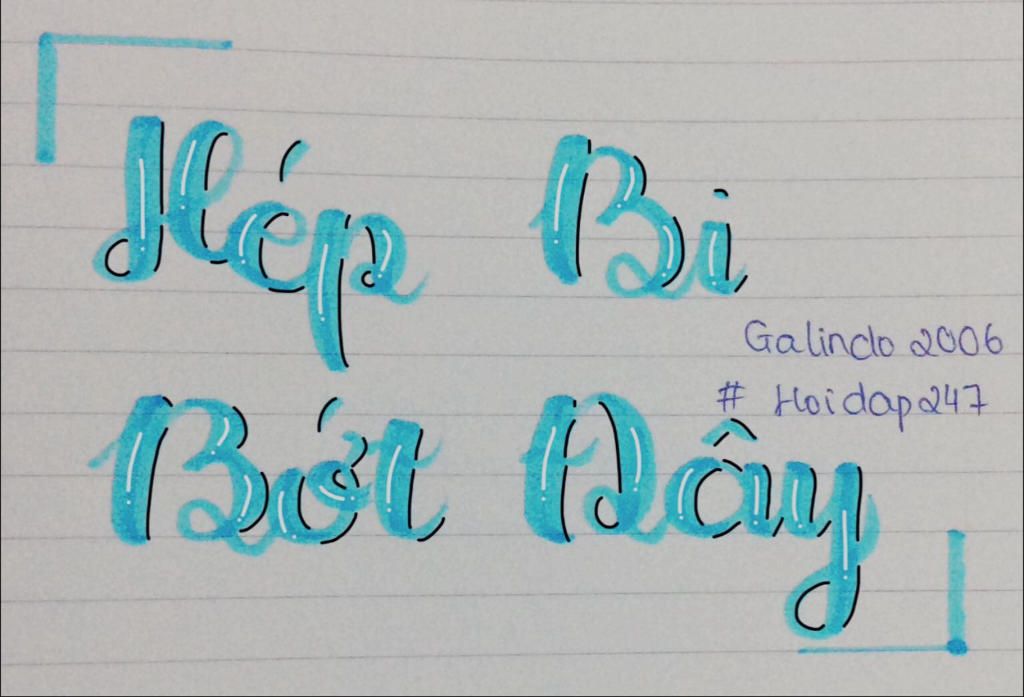 Hép Bi
Galindo 2006
# Hoidap247
Bớt Đây